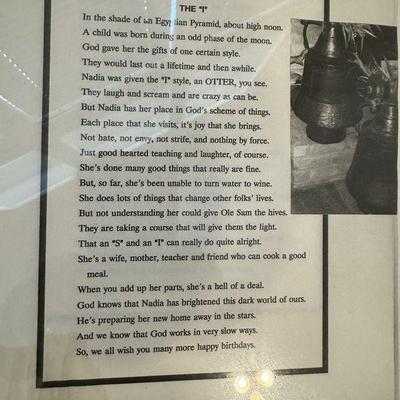 THE "I"
In the shade of an Egyptian Pyramid, about high noon.
A child was born during an odd phase of the moon.
God gave her the gifts of one certain style.
They would last out a lifetime and then awhile.
Nadia was given the "I" style, an OTTER, you see.
They laugh and scream and are crazy as can be.
But Nadia has her place in God's scheme of things.
Each place that she visits, it's joy that she brings.
Not hate, not envy, not strife, and nothing by force.
Just good hearted teaching and laughter, of course.
She's done many good things that really are fine.
But, so far, she's been unable to turn water to wine.
She does lots of things that change other folks' lives.
But not understanding her could give Ole Sam the hives.
They are taking a course that will give them the light.
That an "S" and an "I" can really do quite alright.
She's a wife, mother, teacher and friend who can cook a good
meal.
When you add up her parts, she's a hell of a deal.
God knows that Nadia has brightened this dark world of ours.
He's preparing her new home away in the stars.
And we know that God works in very slow ways.
So, we all wish you many more happy birthdays.